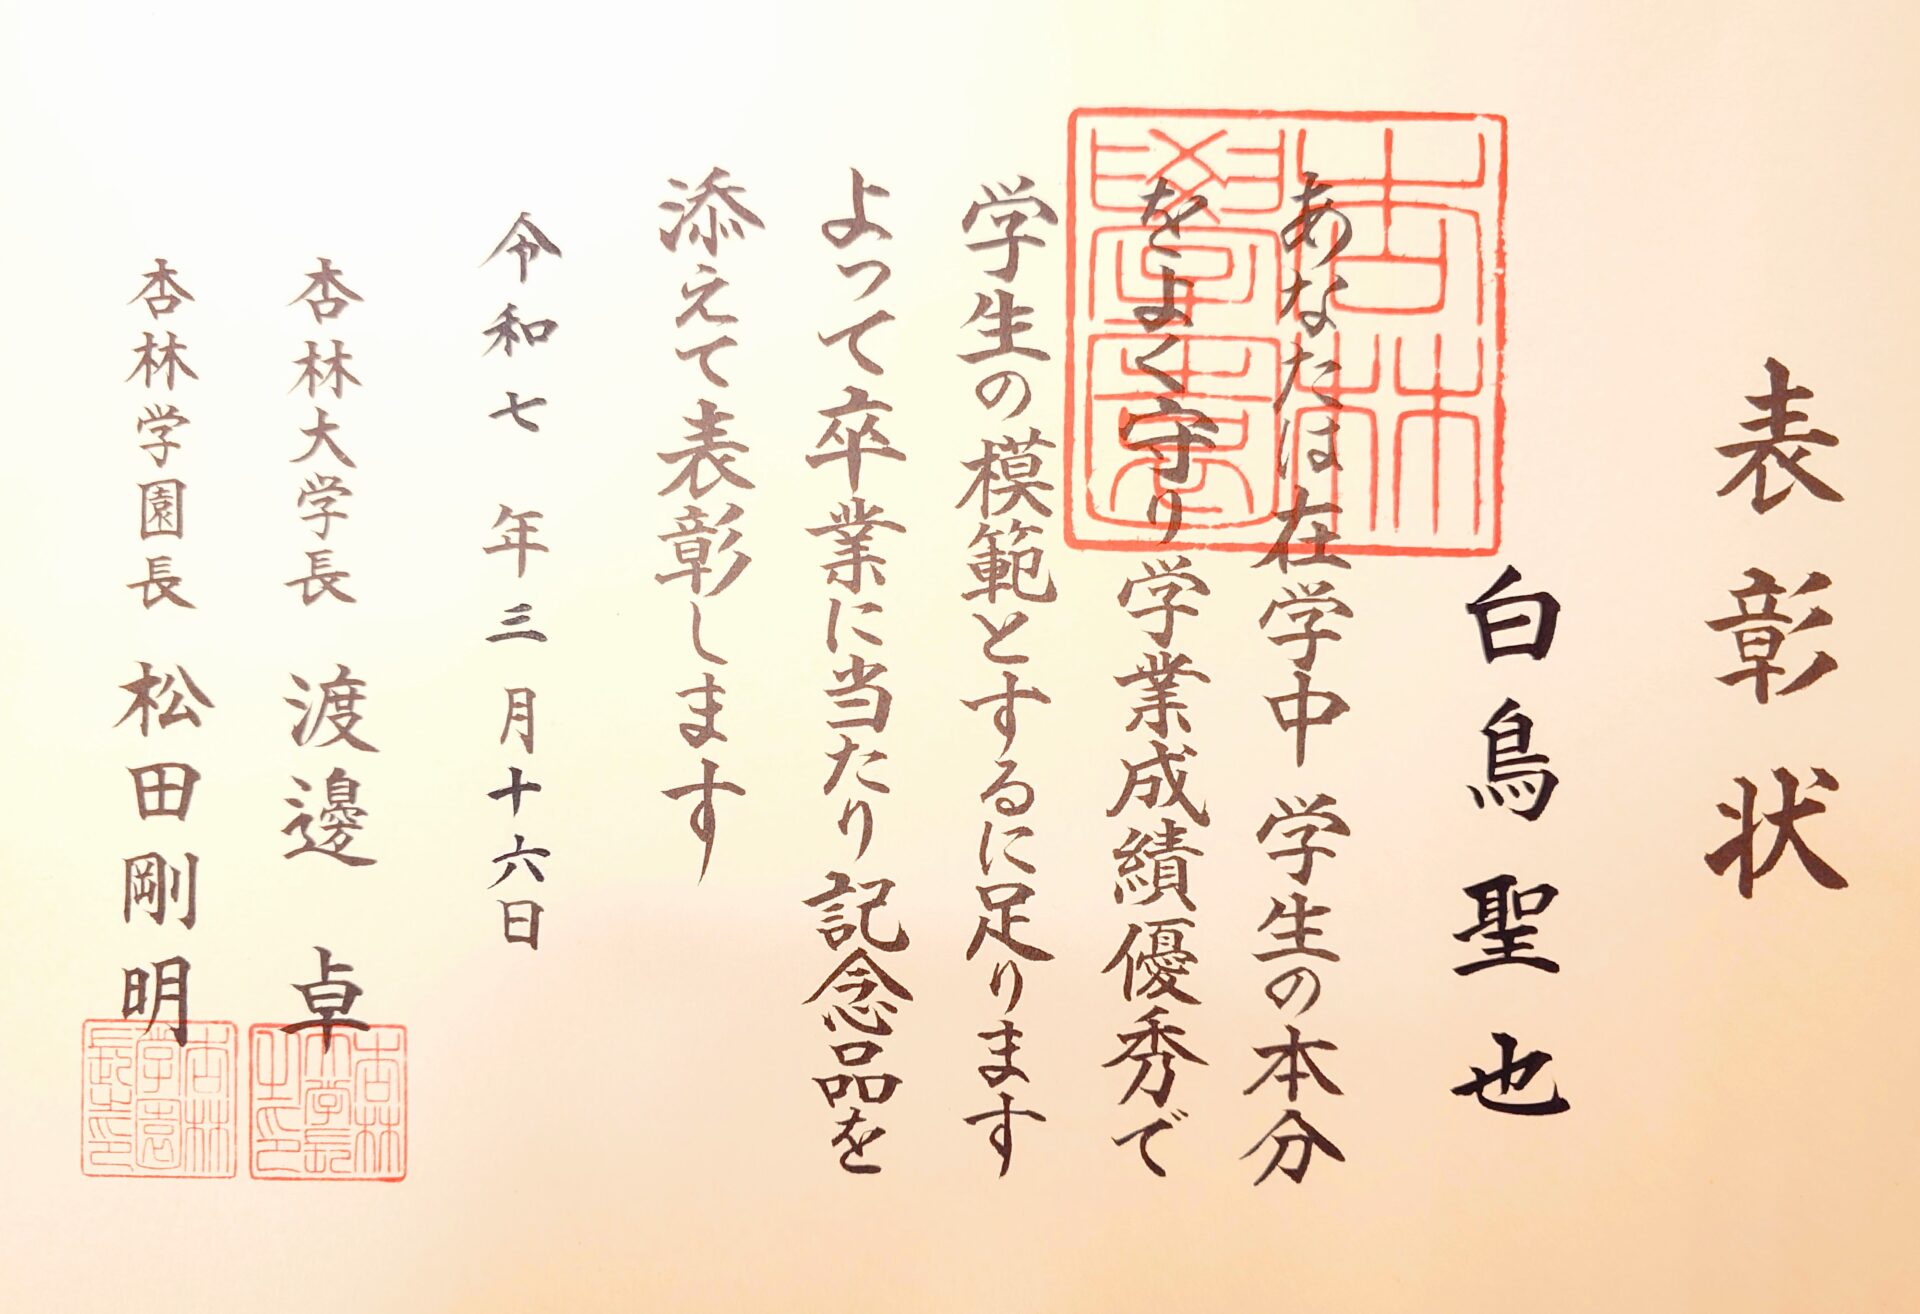 表彰状
白鳥聖也
あなたは在学中 学生の本分
をよく守り学業成績優秀で
学生の模範とするに足ります
よって卒業に当たり記念品を
添えて表彰します
令和七年三月十六日
杏林大学長 渡邊 卓
杏林学園長 松田剛明
杏林
學園
杏林
大学長
之印
杏林
学園
長印